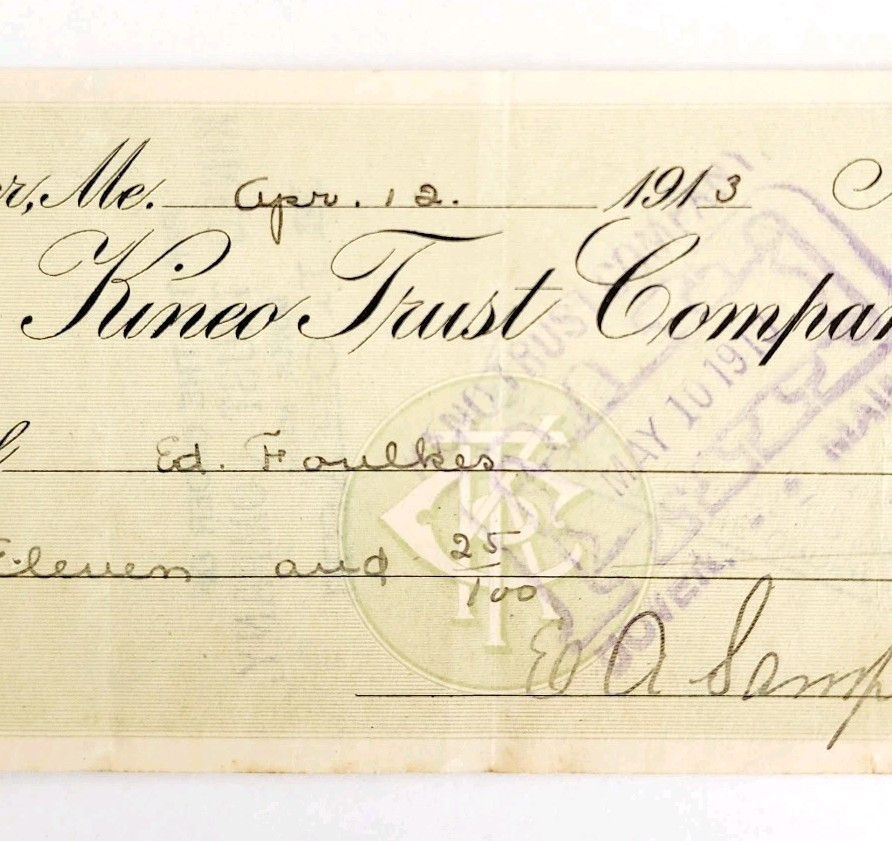 r, Me. Apr. 12. 1913
Kineo Trust Compan
Ed. Foulkes
Eleven and 25/100
E A Samp
KINEO TRUST COMPANY
MAY 10 191
DOVER, MAIN